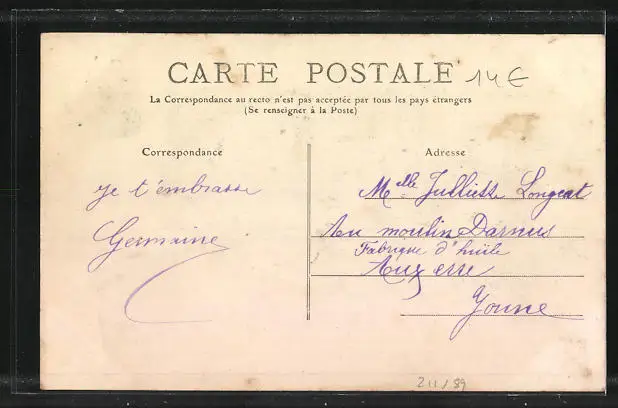 CARTE POSTALE 14€
La Correspondance au recto n'est pas acceptée par tous les pays étrangers
(Se renseigner à la Poste)
Correspondance
Adresse
je t'embrasse
Germaine
Melle Julliette Longeat
Au moulin Darnus
Fabrique d'huile
Auxerre
Yonne
211/89